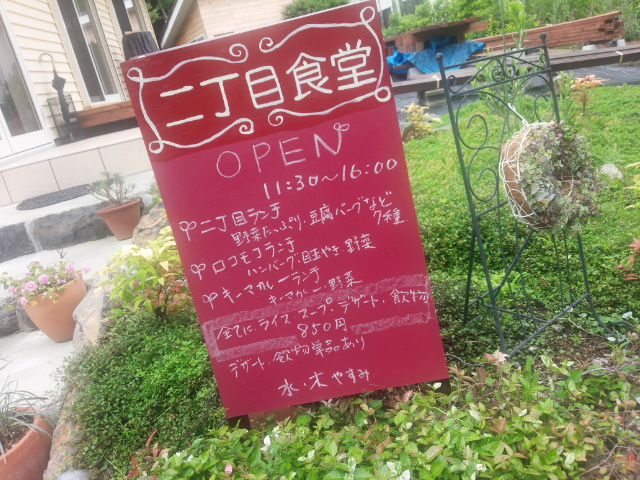 二丁目食堂
OPEN
11:30~16:00
二丁目ランチ
野菜たっぷり、豆腐バーグなど7種
ロコモコランチ
ハンバーグ、目玉やき、野菜
キーマカレーランチ
キーマカレー、野菜
全てに、ライス、スープ、デザート、飲物
850円
デザート、飲物単品あり
水・木やすみ